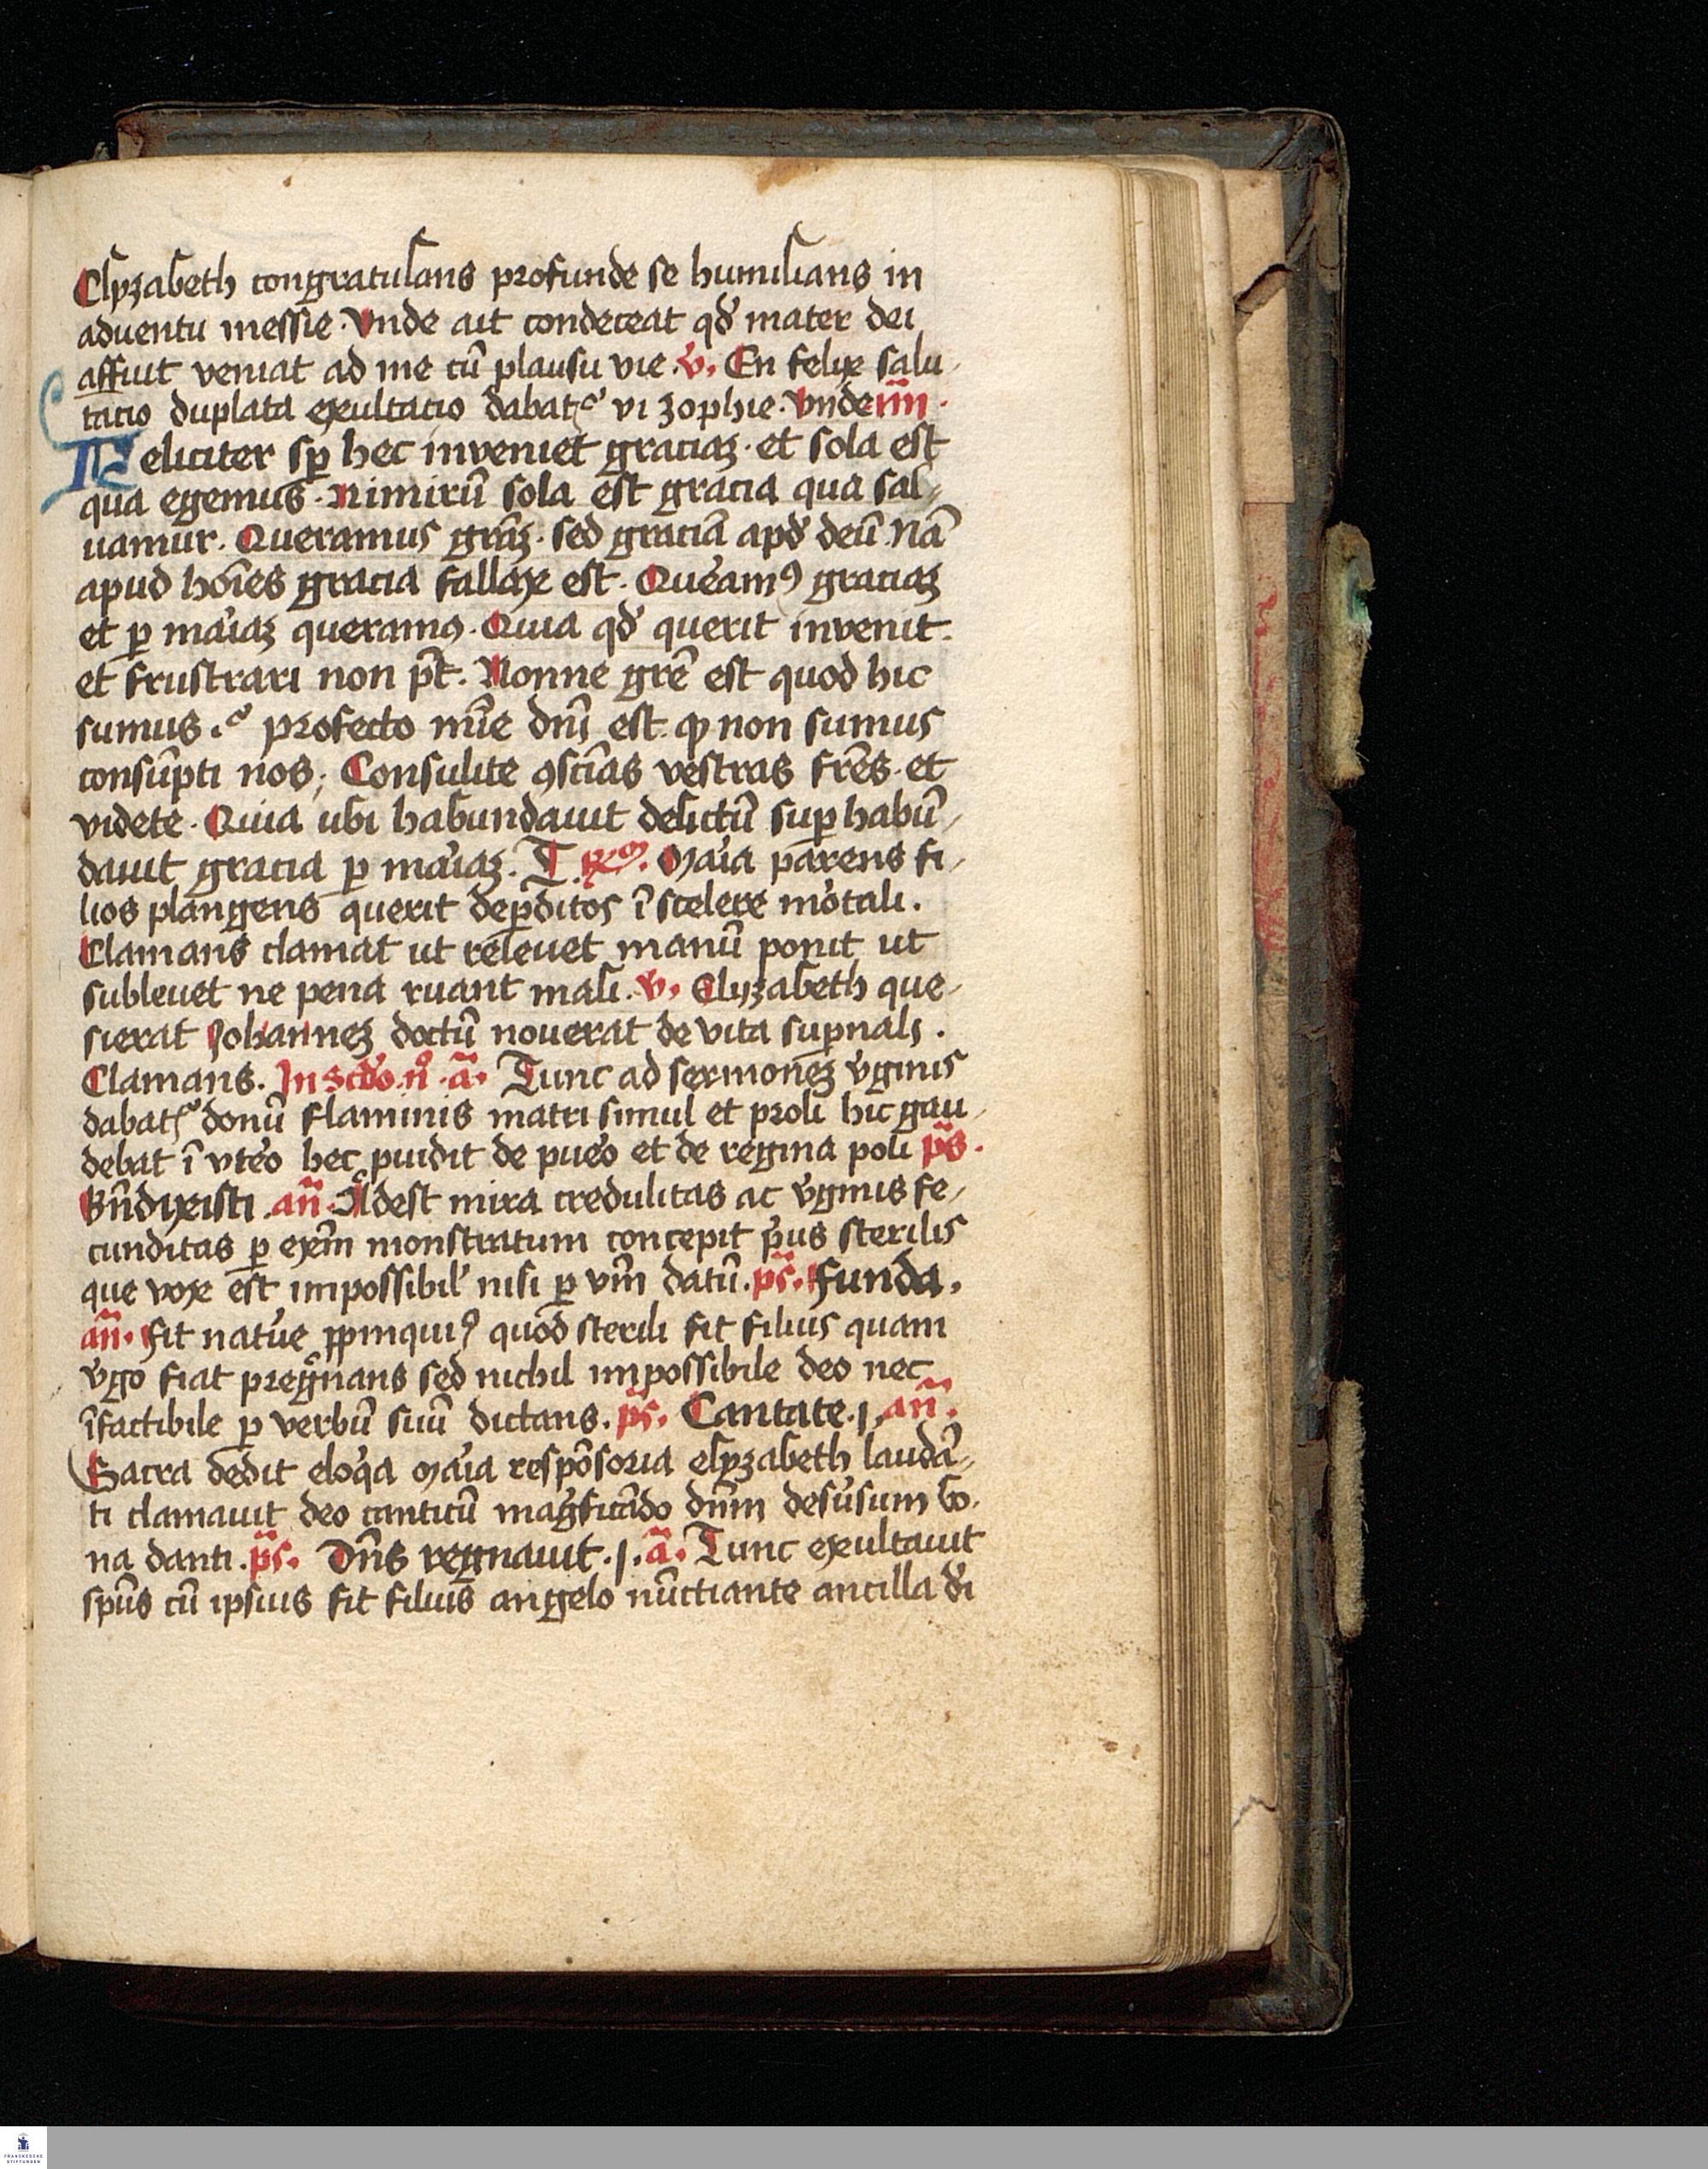 Elyzabeth congratulans profunde se humilians in
aduentu messie. Vnde ait condeceat qd̕ mater dei
affuit veniat ad me cū plausu vie. v̕. En felix salu
tacio duplata exultacio dabat᷑ vi zophie. Vnde iiii.
Feliciter sꝑ hec inveniet graciaȝ. et sola est
qua egemus. Nimirū sola est gracia qua sal
uamur. Queramus gr̄aȝ. sed graciā apd̕ deū Nā
apud hoīes gracia fallax est. Que̕amꝰ graciaȝ
et ꝑ ma̕iaȝ queramꝰ. Quia qd̕ querit invenit.
et frustrari non pt̄. Nonne gr̄e est quod hic
sumus. profecto mīe dn̄i est. ꝙ non sumus
consūpti nos; Consulite ꝯscīas vestras fr̄es. et
videte. Quia ubi habundauit delictū suꝑhabū
dauit gracia ꝑ ma̕iaȝ. T. Rm. Ma̕ia parens fi
lios plangens querit deꝑditos ī scelere mo̕tali.
Clamans clamat ut releuet manū ponit ut
subleuet ne pena ruant mali. v̕. Elyzabeth que
sierat Johanneȝ doctū nouerat de vita suꝑnali.
Clamans. In scd̕o. n̊. ā. Tunc ad sermoneȝ v̕ginis
dabat᷑ donū flaminis matri simul et proli hic gau
debat ī vte̕o hec puidit de pue̕o et de regina poli ps̄.
Bn̄dixisti. an̄. Adest mira credulitas ac v̕ginis fe
cunditas ꝑ exm̄ monstratum concepit p̕us sterilis
que vox est impossibil̕ nisi ꝑ vm̄ datū. ps̄. Funda.
an̄. Fit natu̕e ꝓpinquiꝰ quod sterili fit filius quam
v̕go fiat pregnans sed nichil impossibile deo nec
īfactibile ꝑ verbū suū dictans. ps̄. Cantate. j. an̄.
Sacra dedit eloq̕a Ma̕ia respōsoria elyzabeth laudā
ti clamauit deo canticū mag̕ficādo dn̄m desu̕sum bo
na danti. ps̄. Dn̄s regnauit. j. ā. Tunc exultauit
sp̄us cū ipsius fit filius angelo nūctiante ancilla d̕i
FRANCKESCHE
STIFTUNGEN